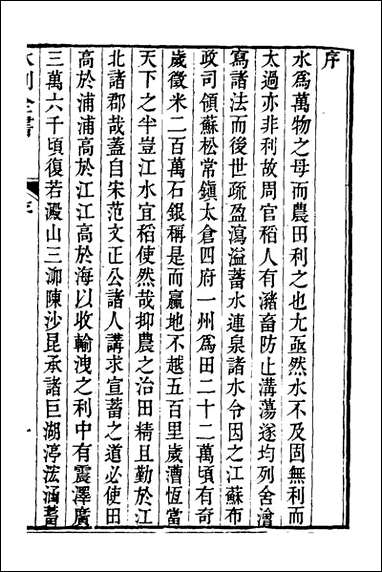 序
水為萬物之母而農田利之也尢亟然水不及固無利而
太過亦非利故周官稻人有瀦畜防止溝蕩遂均列舍澮
寫諸法而後世疏盈瀉溢蓄水連泉諸水令因之江蘇布
政司領蘇松常鎮太倉四府一州為田二十二萬頃有奇
歲徵米二百萬石銀稱是而羸地不越五百里歲漕恆當
天下之半豈江水宜稻使然哉抑農之治田精且勤於江
北諸郡哉蓋自宋范文正公諸人講求宣蓄之道必使田
高於浦浦高於江江高於海以收輸洩之利中有震澤廣
三萬六千頃復若澱山三泖陳沙昆承諸巨湖渟浤涵蓄
水利全書
序
一